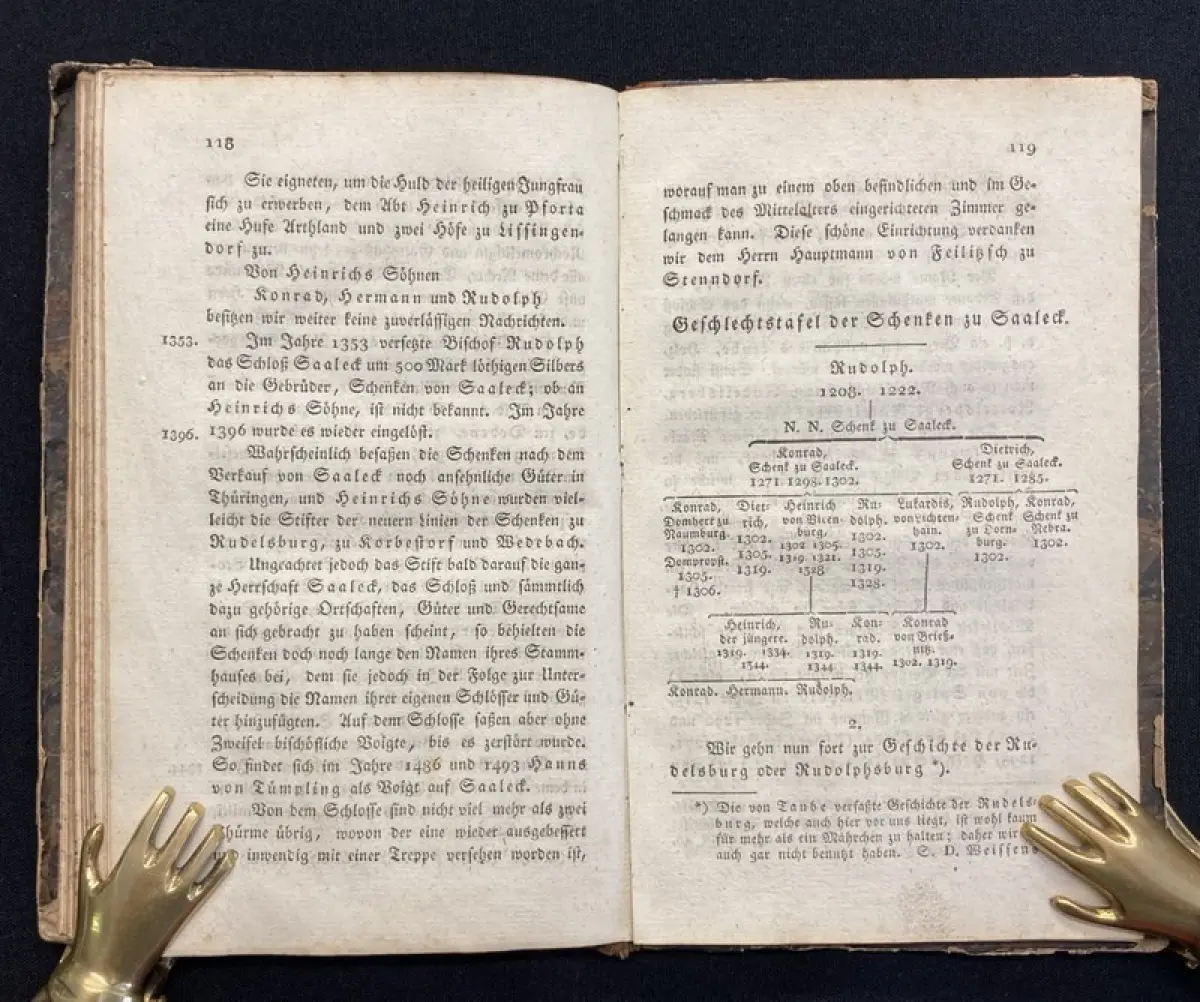 118
Sie eigneten, um die Huld der heiligen Jungfrau
sich zu erwerben, dem Abt Heinrich zu Pforta
eine Hufe Arthland und zwei Höfe zu Lissingen-
dorf zu.
Von Heinrichs Söhnen
Konrad, Hermann und Rudolph
besitzen wir weiter keine zuverlässigen Nachrichten.
1353. Im Jahre 1353 versetzte Bischof Rudolph
das Schloß Saaleck um 500 Mark löthigen Silbers
an die Gebrüder, Schenken von Saaleck; ob an
Heinrichs Söhne, ist nicht bekannt. Im Jahre
1396. 1396 wurde es wieder eingelöst.
Wahrscheinlich besaßen die Schenken nach dem
Verkauf von Saaleck noch ansehnliche Güter in
Thüringen, und Heinrichs Söhne wurden viel-
leicht die Stifter der neuern Linien der Schenken zu
Rudelsburg, zu Korbestorf und Wedebach.
Ungeachtet jedoch das Stift bald darauf die gan-
ze Herrschaft Saaleck, das Schloß und sämmtlich
dazu gehörige Ortschaften, Güter und Gerechtsame
an sich gebracht zu haben scheint, so behielten die
Schenken doch noch lange den Namen ihres Stamm-
hauses bei, dem sie jedoch in der Folge zur Unter-
scheidung die Namen ihrer eigenen Schlösser und Gü-
ter hinzufügten. Auf dem Schlosse saßen aber ohne
Zweifel bischöfliche Voigte, bis es zerstört wurde.
So findet sich im Jahre 1486 und 1493 Hanns
von Tümpling als Voigt auf Saaleck.
Von dem Schlosse sind nicht viel mehr als zwei
Thürme übrig, wovon der eine wieder ausgebessert
und inwendig mit einer Treppe versehen worden ist,
119
worauf man zu einem oben befindlichen und im Ge-
schmack des Mittelalters eingerichteten Zimmer ge-
langen kann. Diese schöne Einrichtung verdanken
wir dem Herrn Hauptmann von Feilitzsch zu
Stenndorf.
Geschlechtstafel der Schenken zu Saaleck.
Rudolph.
1208. 1222.
N. N. Schenk zu Saaleck.
Konrad, Dietrich,
Schenk zu Saaleck. Schenk zu Saaleck.
1271. 1298. 1302. 1271. 1285.
Konrad, Diet- Heinrich Ru- Lukardis, Rudolph, Konrad,
Domherr zu rich, von Vicen- dolph. von Lichten- Schenk Schenk zu
Naumburg. 1302. burg, 1302. hain. zu Dorn- Nebra.
1302. 1305. 1302 1305. 1305. 1302. burg. 1302.
Dompropst. 1319. 1319 1321. 1319. 1302.
1305. 1328 1328.
† 1306.
Heinrich, Ru- Kon- Konrad
der jüngere. dolph. rad. von Brieß-
1319. 1334. 1319. 1319. nitz.
1344. 1344 1344. 1302. 1319.
Konrad. Hermann. Rudolph.
2.
Wir gehn nun fort zur Geschichte der Ru-
delsburg oder Rudolphsburg *).
*) Die von Taube verfaßte Geschichte der Rudels-
burg, welche auch hier vor uns liegt, ist wohl kaum
für mehr als ein Mährchen zu halten; daher wir
auch gar nicht benutzt haben. S. D.